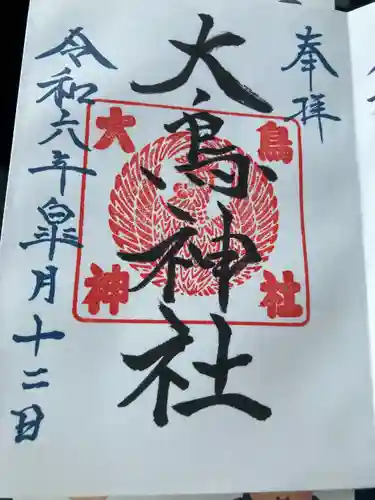 奉拝
大鳥神社
大鳥
神社
令和六年皐月十二日